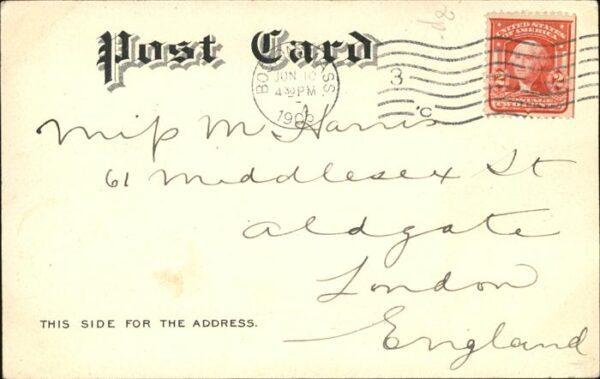 Post Card
BOSTON, MASS.
JUN 10
4 30 PM
1905
3
C
UNITED STATES
OF AMERICA
2 2
TWO CENTS
Miss M Harris
61 Middlesex St
Aldgate
London
England
THIS SIDE FOR THE ADDRESS.